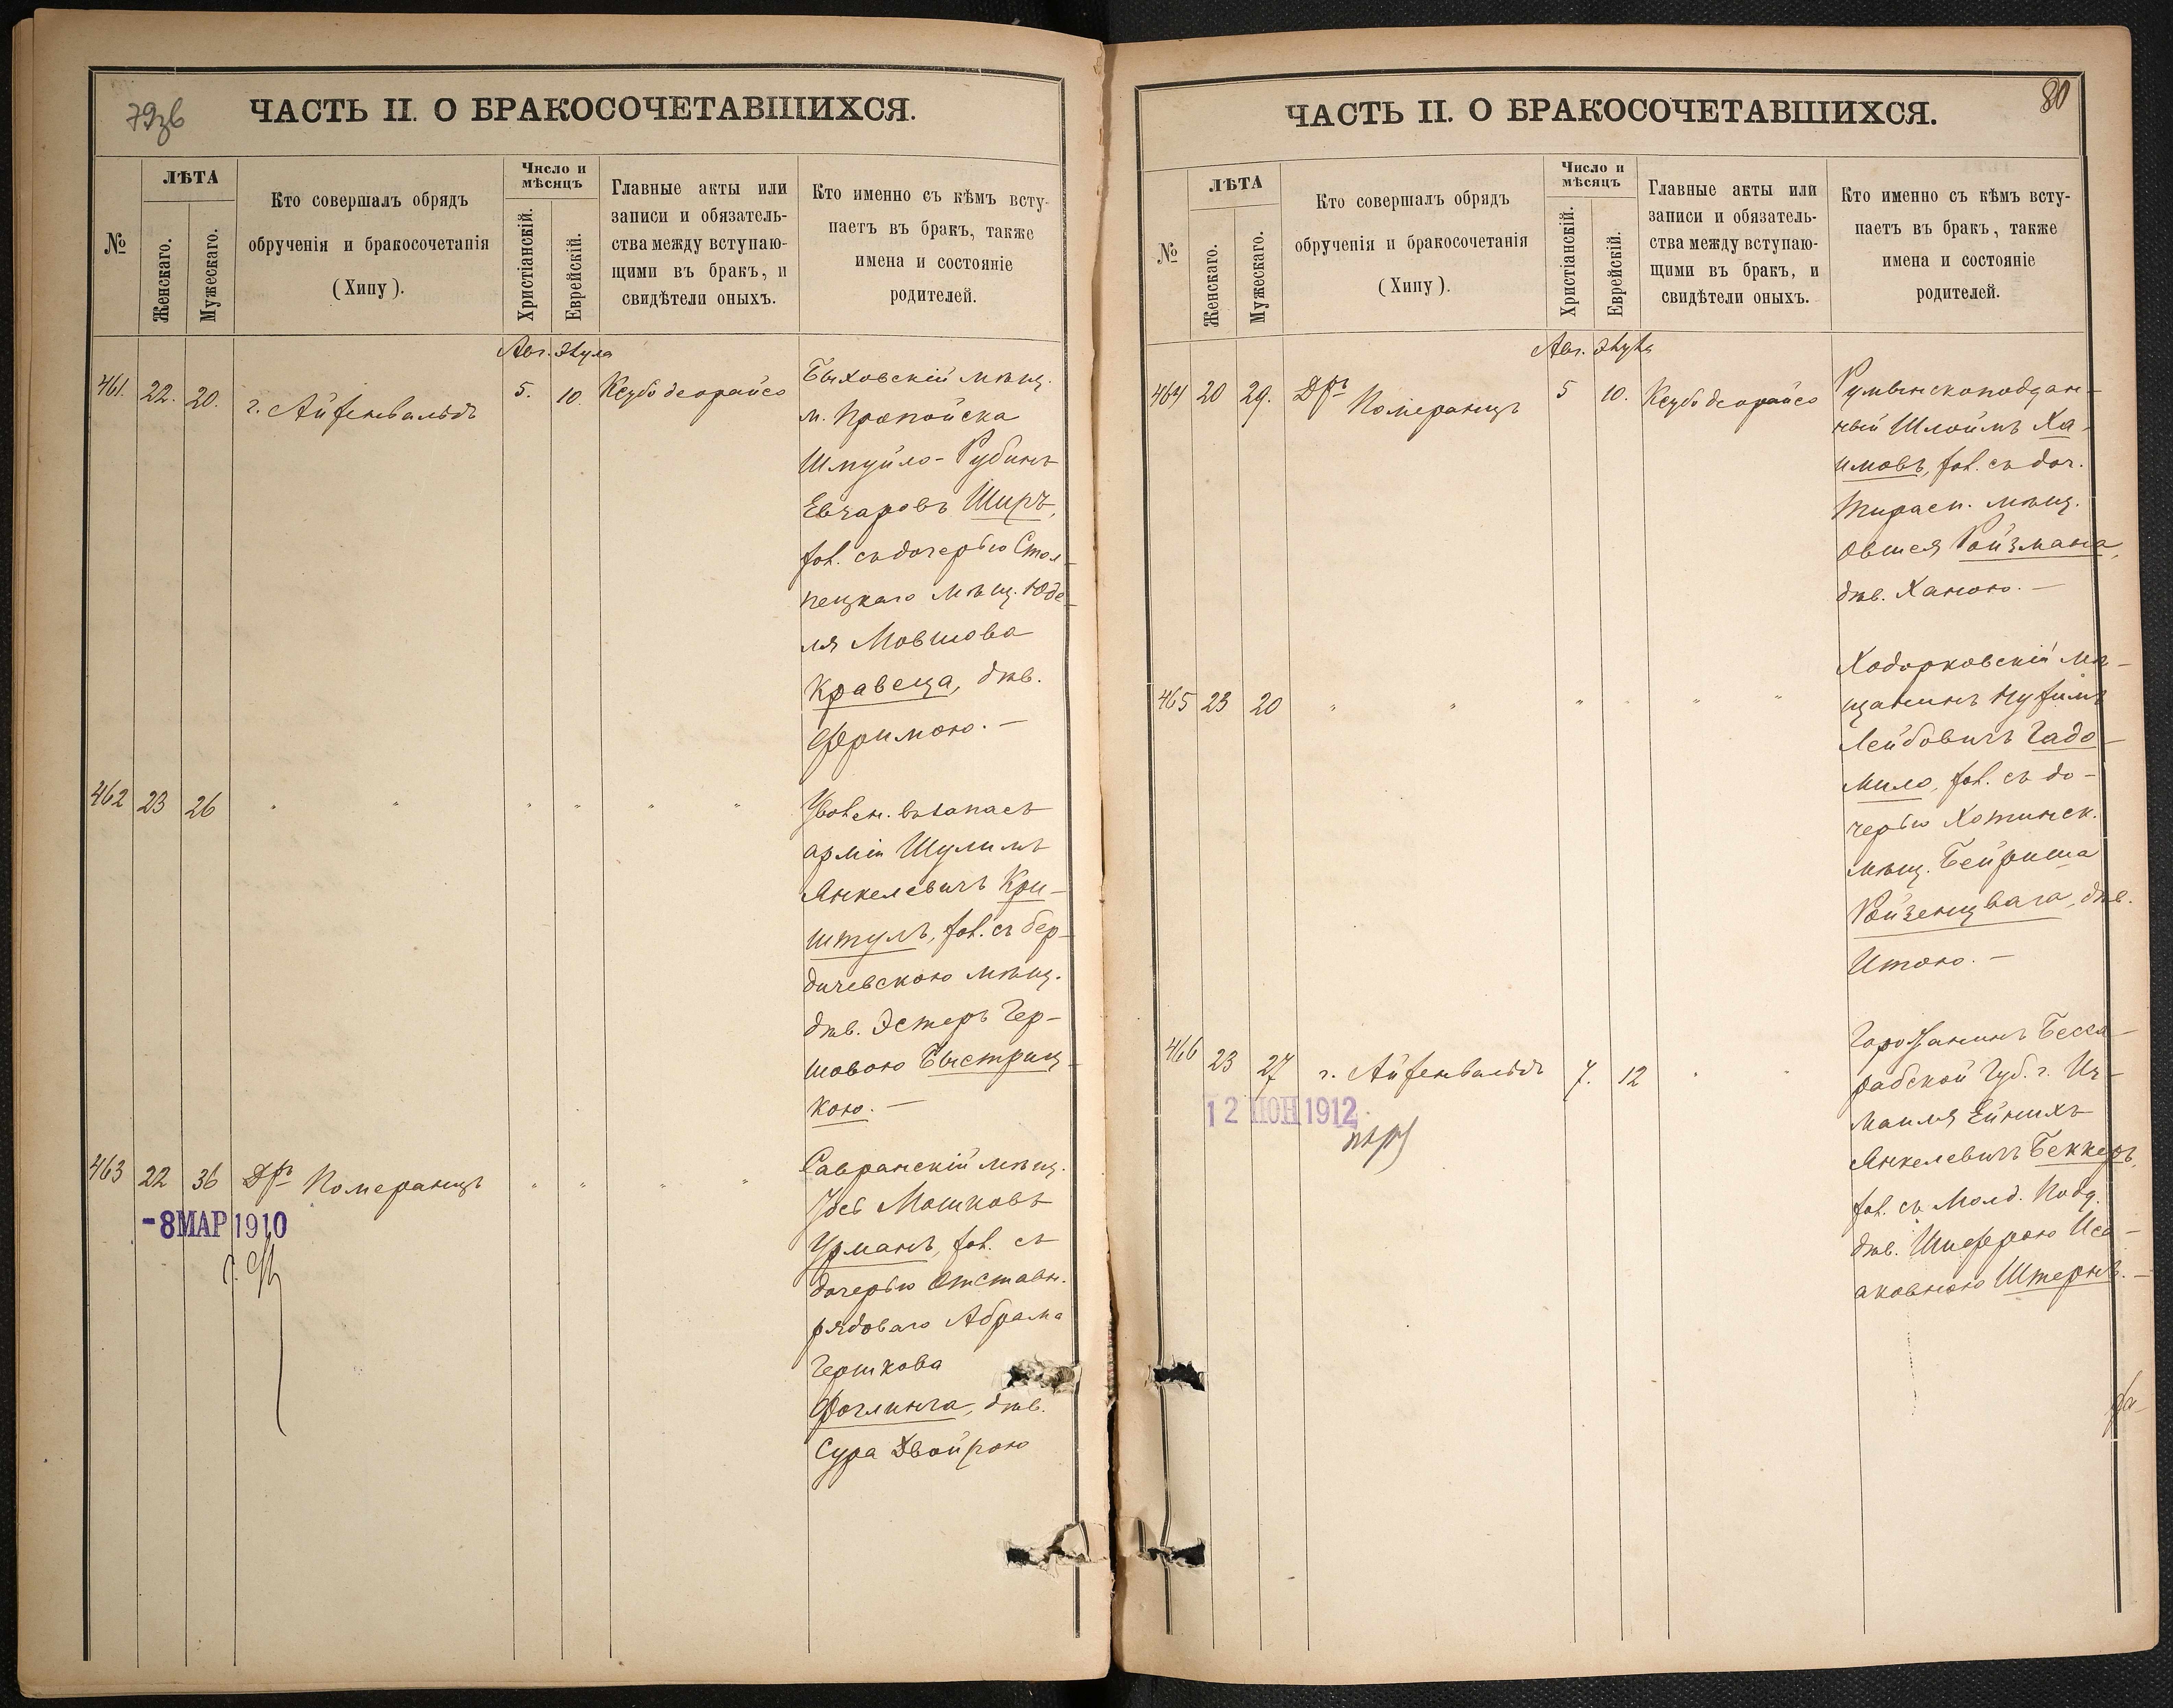 79зв
ЧАСТЬ II. О БРАКОСОЧЕТАВШИХСЯ.
№
ЛѢТА
Женскаго.
Мужескаго.
Кто совершалъ обрядъ
обрученія и бракосочетанія
(Хипу).
Число и
мѣсяцъ
Христіанскій.
Еврейскій.
Главные акты или
записи и обязатель-
ства между вступаю-
щими въ бракъ, и
свидѣтели оныхъ.
Кто именно съ кѣмъ всту-
паетъ въ бракъ, также
имена и состояніе
родителей.
Авг. Элула
461. 22. 20. г. Айзенвальдъ 5. 10. Ксубо деорайсо
Быховскій мѣщ.
м. Пропойска
Шмуйло-Рубинъ
Евзаровъ Широ,
хол. съ дочерью Стол-
пецкаго мѣщ. Юде-
ля Мовшова
Кравеца, дѣв.
Фримою. —
462 23 26 " " " " " "
Увол. въ запасъ
арміи Шулимъ
Анкелевичъ Кри-
штулъ, хол. съ бер-
дичевскою мѣщ.
дѣв. Эстеръ Гер-
шовою Быстриц-
кою. —
463 22 36 Дръ Померанцъ " " " "
-8 МАР 1910
Савранскій мѣщ.
Іось Мошковъ
Урманъ, хол. съ
дочерью Отставн.
рядоваго Абрама
Гершкова
Фоглинга, дѣв.
Сура Двойрою
80
ЧАСТЬ II. О БРАКОСОЧЕТАВШИХСЯ.
№
ЛѢТА
Женскаго.
Мужескаго.
Кто совершалъ обрядъ
обрученія и бракосочетанія
(Хипу).
Число и
мѣсяцъ
Христіанскій.
Еврейскій.
Главные акты или
записи и обязатель-
ства между вступаю-
щими въ бракъ, и
свидѣтели оныхъ.
Кто именно съ кѣмъ всту-
паетъ въ бракъ, также
имена и состояніе
родителей.
Авг. Элула
464 20 29. Дръ Померанцъ 5 10. Ксубо деорайсо
Румынскоподдан-
ный Шлоймъ Ха-
имовъ, хол. съ доч.
Тирасп. мѣщ.
Овшея Ройзмана,
дѣв. Ханою. —
465 23 20 " " " " " "
Ходорковскій мѣ-
щанинъ Нухимъ
Лейбовичъ Гадо-
мило, хол. съ до-
черью Хотинск.
мѣщ. Бейриша
Ройзенцвага, дѣв.
Итою. —
466 23 27 г. Айзенвальдъ 7. 12 " "
12 ІЮН 1912
Горожанинъ Бесса-
рабской Губ. г. Из-
маила Ейнихъ
Анкелевичъ Беккеръ,
хол. съ Молд. Подд.
дѣв. Шифрою Иса-
аковною Штернъ. —